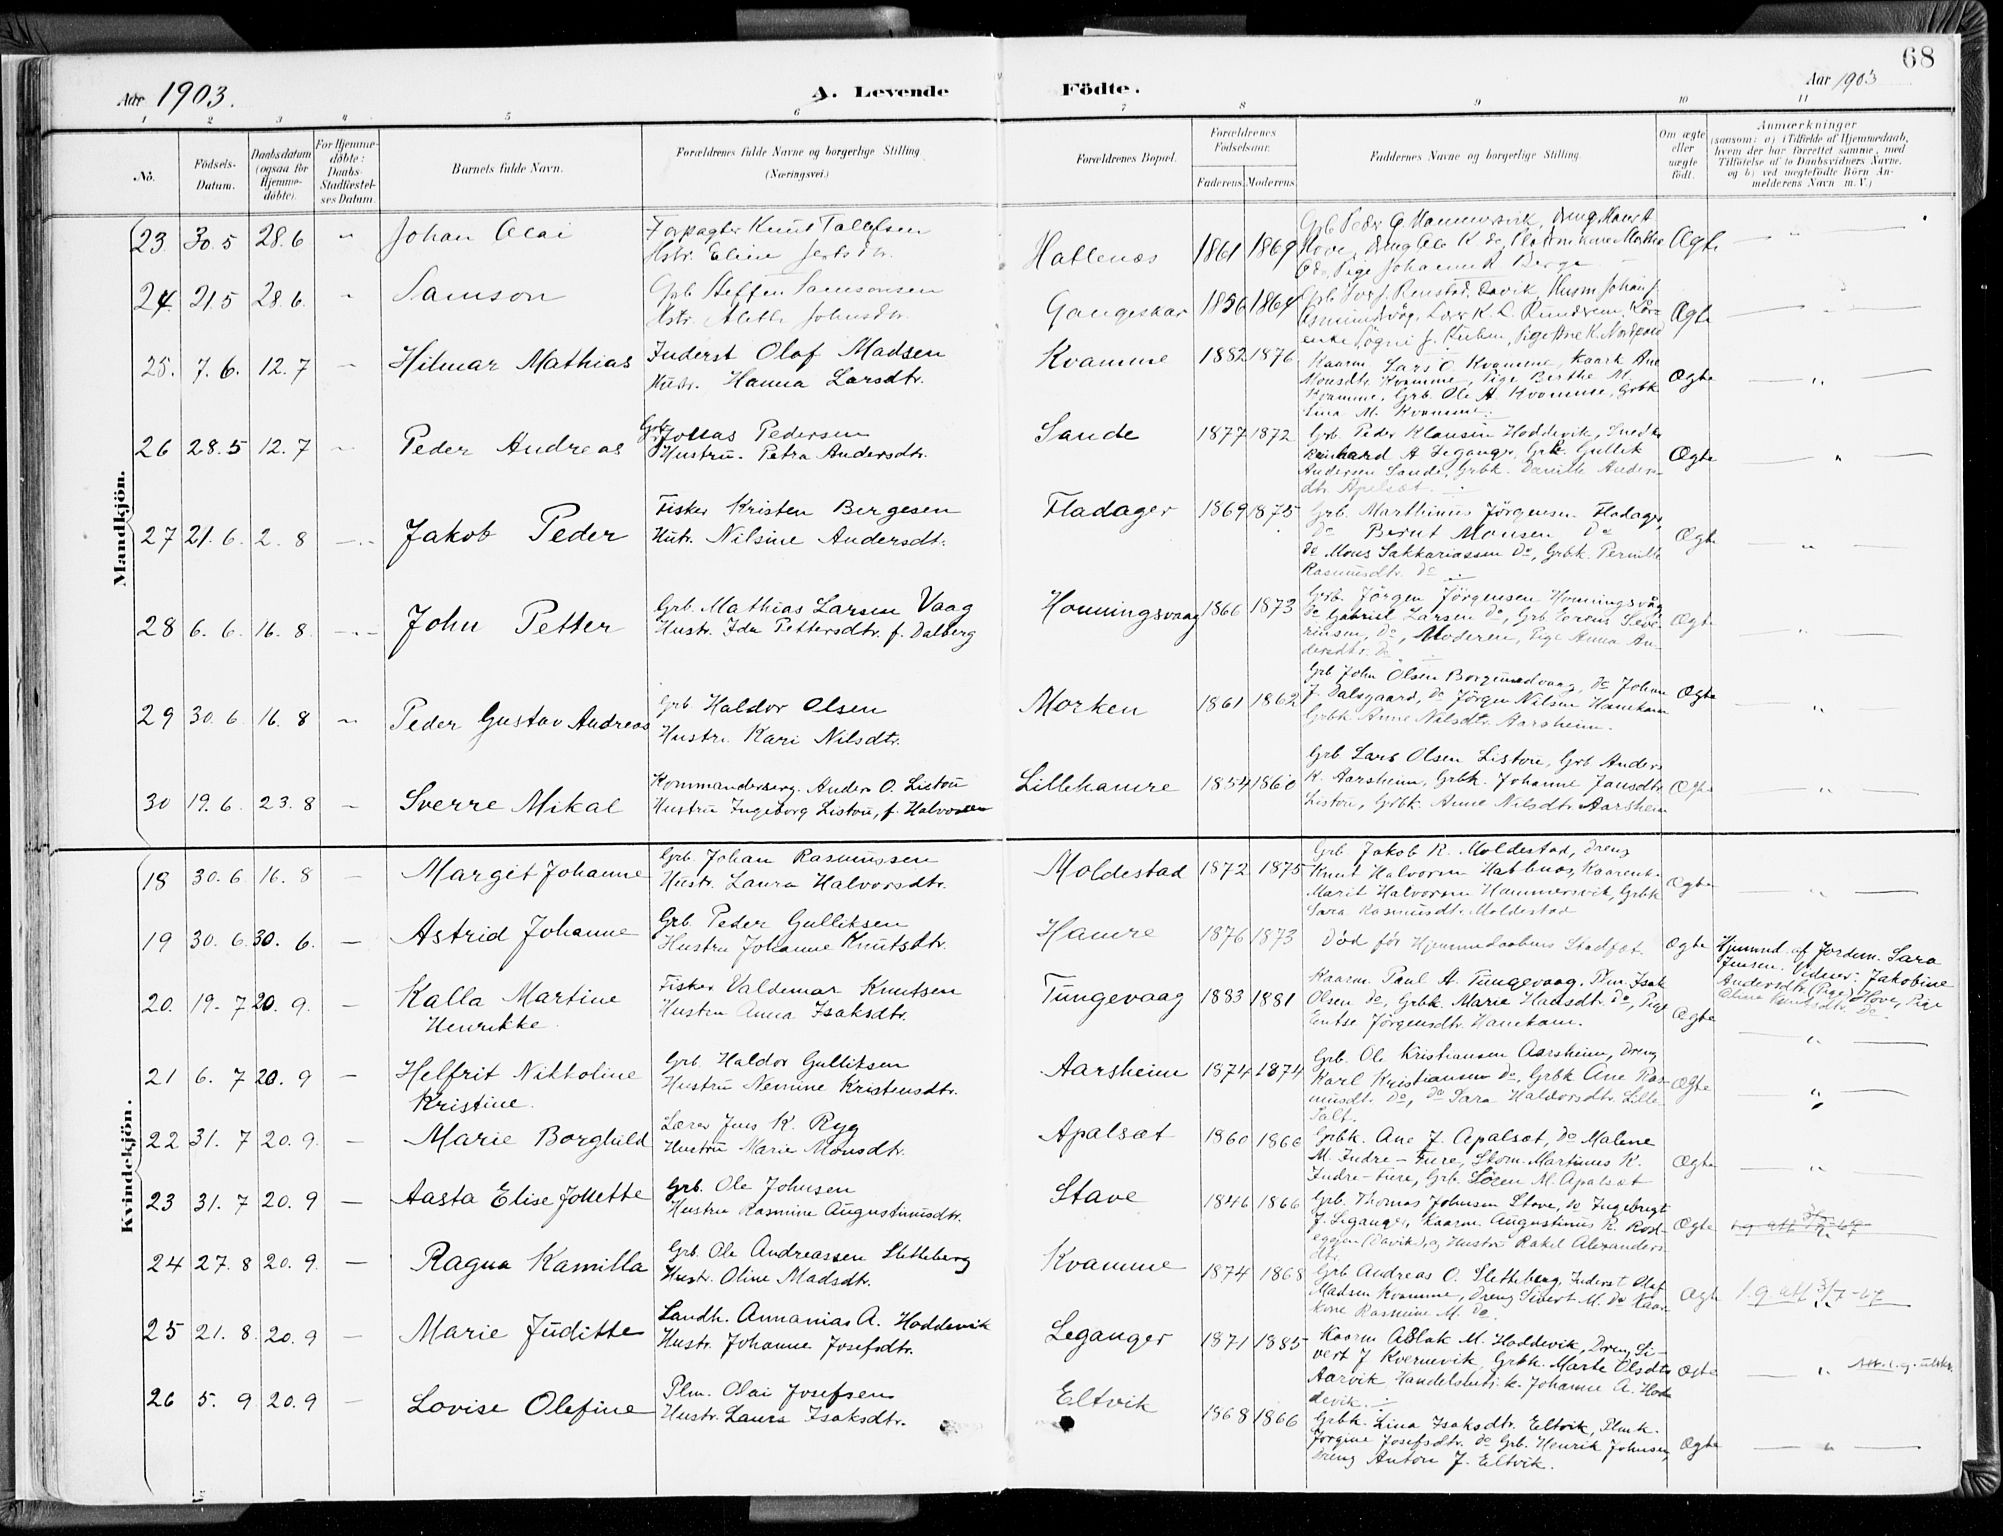 68
Aar 1903.
A. Levende Födte.
Aar 1903
1 2 3 4 5 6 7 8 9 10 11
No.
Födsels-Datum.
Daabsdatum (ogsaa for Hjemme-döbte).
For Hjemme-döbte: Daabs-Stadfæstel-ses Datum.
Barnets fulde Navn.
Forældrenes fulde Navne og borgerlige Stilling (Næringsvei.)
Forældrenes Bopæl.
Forældrenes Födselsaar.
Faderens. Moderens.
Faddernes Navne og borgerlige Stilling.
Om ægte eller uægte födt.
Anmærkninger
(saasom: a) i Tilfælde af Hjemmedaab, hvem der har forrettet samme, med Tilföielse af to Daabsvidners Navne. og b) ved uægtefödte Börn An-melderens Navn m. V.)
Mandkjön.
23 30.5 28.6 Johan Olai
Forpagter Knut Tollefsen
Hstr. Eline
Hatlenæs 1861 1869
Johanne K Berge
Ægte
24 21.5 28.6. Samson
Grb Steffen Samsonsen
Hstr. Alethe Johnsdtr.
Gangeskar 1856 1864
Ægte
25. 7.6. 12.7 Hilmar Mathias
Inderst Olaf Madsen
Hustr. Hanna Larsdtr.
Kvamme 1882 1876
Kaarm Lars O. Kvamme, Kaark Ane
Monsdtr. Kvamme, Pige Berthe M.
Kvamme, Grb. Ole A. Kvamme, Grbk
Lina M. Kvamme.
Ægte
26 28.5 12.7 Peder Andreas
Grb. Jonas Pedersen
Hustru. Petra Andersdtr.
Sande 1877 1872
Grb. Peder Klausen Hoddevik, Snedk
Reinhard A Leganger, Grb. Gullik
Andersen Sande, Grbk. Pernille Anders-
dtr. Apelsæt.
Ægte
27 21.6. 2.8 Jakob Peder
Fisker Kristen Bergesen
Hutr. Nilsine Andersdtr.
Fladager 1869 1875
Grb. Marthinus Jörgensen Fladager,
Do Bernt Monsen Do
do Mons Sakkariassen Do, Grbk. Pernille
Rasmusdtr. Do
Ægte
28 6.6. 16.8. John Petter
Grb. Mathias Larsen Vaag
Hustr. Ida Pettersdtr. f. Dalberg
Honningsvaag 1866 1873
Grb. Jörgen Jörgensen Honningsvåg
Do Gabriel Larsen Do, Grb. Erens Seve-
rinsen, Do, Moderen, Pige Anna An-
dersdtr. Do
Ægte
29 30.6. 16.8 Peder Gustav Andreas
Grb Haldor Olsen
Hustr. Kari Nilsdtr.
Morken 1861 1862
Grb John Olsen Borgundvaag, Do Johan
J. Dalsgaard, do Jörgen Nilsen Hamkam
Grbk Anne Nilsdtr. Aarsheim.
Ægte
30 19.6. 23.8 Sverre Mikal
Kommanderserg. Anders O. Listou
Hustru Ingeborg Listou, f. Halvorsen
Lillehamre 1854 1860
Grb Lars Olsen Listou, Grb Anders
K. Aarsheim, Grbk. Johanne Jansdtr.
Listou, Grbk. Anne Nilsdtr Aarsheim
Ægte
Kvindekjön.
18 30.6 16.8 Margit Johanne
Grb. Johan Rasmussen
Hustr. Laura Halvorsdtr.
Moldestad 1872 1875
Grb Jakob R. Moldestad, Dreng
Knut Halvorsen Hatlenæs, Kaarenk.
Marit Halvorsen Hammersvik, Grbk
Sara Rasmusdtr. Moldestad
Ægte
19 30.6. 30.6. Astrid Johanne
Grb. Peder Gulliksen
Hustru Johanne Knutsdtr.
Hamre 1876 1873
Död för Hjemmedaabens Stadfæst.
Ægte
Hjemmd. af Jordem. Sara
Jensen. Vidner: Jakobine
Andersdtr. (Pige) Hove, Pige
Elina Knutsdtr. Do.
20. 19.7 20.9. Kalla Martine
Henrikke.
Fisker Valdemar Knutsen
Hustru Anna Isaksdtr.
Tungevaag 1883 1881
Kaarm. Paul A. Tungevaag, Plm. Isak
Olsen do, Grbk. Marie Hansdtr. Do, Pige
Entse Jörgensdtr. Hamekam.
Ægte
21 6.7 20.9 Helfrit Nikoline
Kristine.
Grb. Haldor Gulliksen
Hustru Nemine Kristensdtr.
Aarsheim 1874 1874
Grb. Ole Kristiansen Aarsheim, Dreng
Karl Kristiansen Do, Grbk Ane Ras-
musdtr. Do, Do Sara Haldorsdtr. Lille
Salt.
Ægte
22 31.7 20.9. Marie Borghild
Lærer Jens K. Ryg
Hustru Marie Monsdtr.
Apalsæt 1860 1866
Grbk. Ane J. Apalsæt, Do Malene
M. Indre-Fure, Stom. Martinus K.
Indre-Fure, Grb. Sören M. Apalsæt
Ægte
23 31.7 20.9 Aasta Elise Jonette
Grb. Ole Johnsen
Hustru Rasmine Augustinusdtr.
Stave 1846 1866
Grb. Thomas Johnsen Stave, do Ingebrigt
J. Leganger, Kaarm. Augustinus R. Ros-
eggen (Davik), og Hustru Rakel Alexanders-
dtr.
Ægte
24 27.8 20.9. Ragna Kamilla
Grb. Ole Andreassen Sletteberg
Hustr. Oline Madsdtr.
Kvamme 1874 1868
Grb Andreas O. Sletteberg, Inderst Olaf
Madsen Kvamme, Dreng Sivert M. Do Kaar-
kone Rasmine M. Do.
Ægte
1.g. att 3/7-67
25 21.8. 20.9 Marie Juditte
Landh. Annanias A. Hoddevik
Hustr. Johanne Josefsdtr.
Leganger 1871 1885
Kaarm Aslak M. Hoddevik, Dreng Si-
vert J Kvernevik, Grbk. Marte Olsdtr
Aarvik, Handelsbetj. k. Johanne A. Hod-
devik.
Ægte
26 5.9 20.9 Lovise Olefine
Plm. Olai Josefsen
Hustr. Laura Isaksdtr.
Eltvik 1868 1866
Grbk. Lina Isaksdtr. Eltvik, Plmk.
Jörgine Josefsdtr. do Grb. Henrik Johnsen,
Dreng Anton J. Eltvik.
Ægte